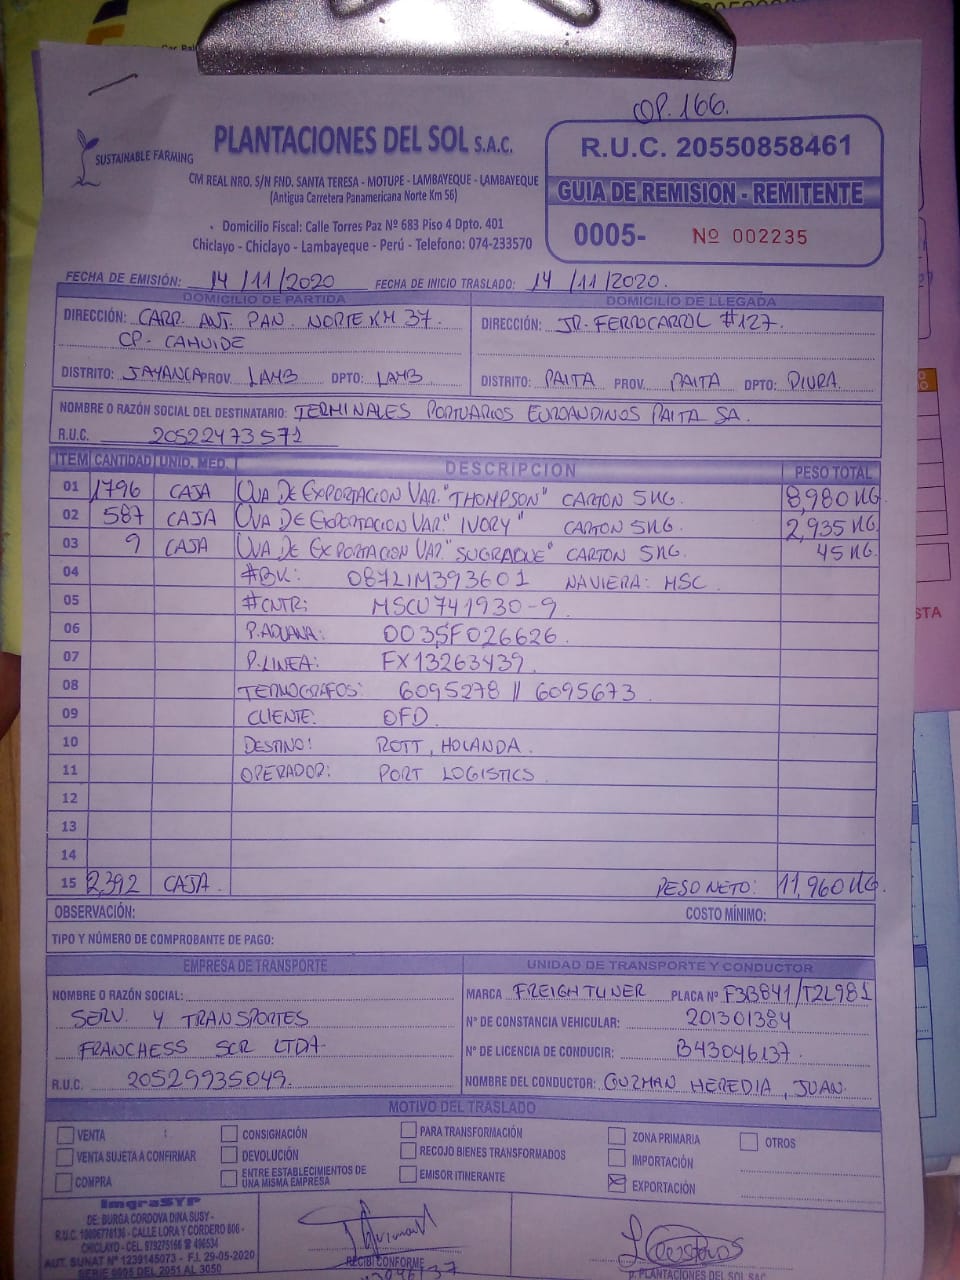 OP. 166.
SUSTAINABLE FARMING
PLANTACIONES DEL SOL S.A.C.
CM REAL NRO. S/N FND. SANTA TERESA - MOTUPE - LAMBAYEQUE - LAMBAYEQUE
(Antigua Carretera Panamericana Norte Km 56)
Domicilio Fiscal: Calle Torres Paz Nº 683 Piso 4 Dpto. 401
Chiclayo - Chiclayo - Lambayeque - Perú - Telefono: 074-233570
R.U.C. 20550858461
GUIA DE REMISION - REMITENTE
0005- Nº 002235
FECHA DE EMISIÓN: 14/11/2020 FECHA DE INICIO TRASLADO: 14/11/2020.
DOMICILIO DE PARTIDA DOMICILIO DE LLEGADA
DIRECCIÓN: CARR. ANT. PAN. NORTE KM 37. DIRECCIÓN: JR. FERROCARROL #127.
CP. CAHUIDE
DISTRITO: JAYANCA PROV. LAMB DPTO: LAMB. DISTRITO: PAITA PROV. PAITA DPTO: PIURA.
NOMBRE O RAZÓN SOCIAL DEL DESTINATARIO: TERMINALES PORTUARIOS EUROANDINOS PAITA SA.
R.U.C. 20522473571
ITEM CANTIDAD UNID. MED. DESCRIPCION PESO TOTAL
01 1796 CAJA UVA DE EXPORTACION VAR. "THOMPSON" CARTON 5KG. 8,980 KG.
02 587 CAJA UVA DE EXPORTACION VAR. "IVORY" CARTON 5KG. 2,935 KG.
03 9 CAJA UVA DE EXPORTACION VAR. "SUGRAONE" CARTON 5KG. 45 KG.
04 #BK: 087LIM393601 NAVIERA: MSC.
05 #CNTR: MSCU741930-9.
06 P.ADUANA: 003SF026626.
07 P.LINEA: FX13263439.
08 TERMOGRAFOS: 6095278 // 6095673.
09 CLIENTE: OFD.
10 DESTINO: ROTT, HOLANDA.
11 OPERADOR: PORT LOGISTICS
12
13
14
15 2,392 CAJA. PESO NETO: 11,960 KG.
OBSERVACIÓN: COSTO MÍNIMO:
TIPO Y NÚMERO DE COMPROBANTE DE PAGO:
EMPRESA DE TRANSPORTE UNIDAD DE TRANSPORTE Y CONDUCTOR
NOMBRE O RAZÓN SOCIAL: MARCA FREIGHTLINER PLACA Nº F3B841/T2L981
SERV. Y TRANSPORTES Nº DE CONSTANCIA VEHICULAR: 201301384
FRANCHESS SCR LTDA. Nº DE LICENCIA DE CONDUCIR: B43046137.
R.U.C. 20529935049. NOMBRE DEL CONDUCTOR: GUZMAN HEREDIA, JUAN.
MOTIVO DEL TRASLADO
VENTA CONSIGNACIÓN PARA TRANSFORMACIÓN ZONA PRIMARIA OTROS
VENTA SUJETA A CONFIRMAR DEVOLUCIÓN RECOJO BIENES TRANSFORMADOS IMPORTACIÓN
COMPRA ENTRE ESTABLECIMIENTOS DE UNA MISMA EMPRESA EMISOR ITINERANTE EXPORTACIÓN
ImgraSYP
DE: BURGA CORDOVA DINA SUSY -
CALLE LORA Y CORDERO 606 -
AUT. SUNAT Nº 1239145073 - F.I. 29-05-2020
SERIE 0005 DEL 2051 AL 3050
RECIBI CONFORME
P. PLANTACIONES DEL SOL SAC